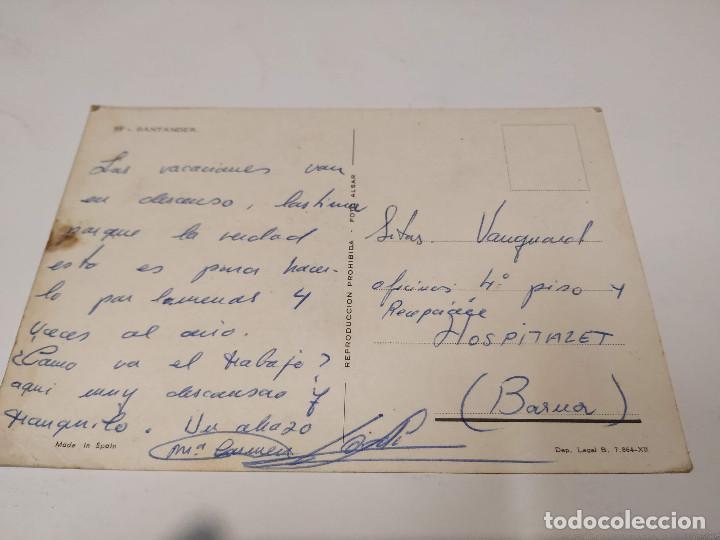 - SANTANDER.
Las vacaciones van
en descenso, lastima
porque la verdad
esto es para hacer-
lo por lo menos 4
veces al año.
¿Como va el trabajo?
aqui muy descansao y
tranquilo. Un abrazo
Mª Carmen
Made in Spain
REPRODUCCION PROHIBIDA - FOTO ALSAR
Srtas. Vanguard
oficinas 4º piso y
HOSPITALET
(Barna)
Dep. Legal B. 7.864-XII
todocoleccion
todocoleccion.net